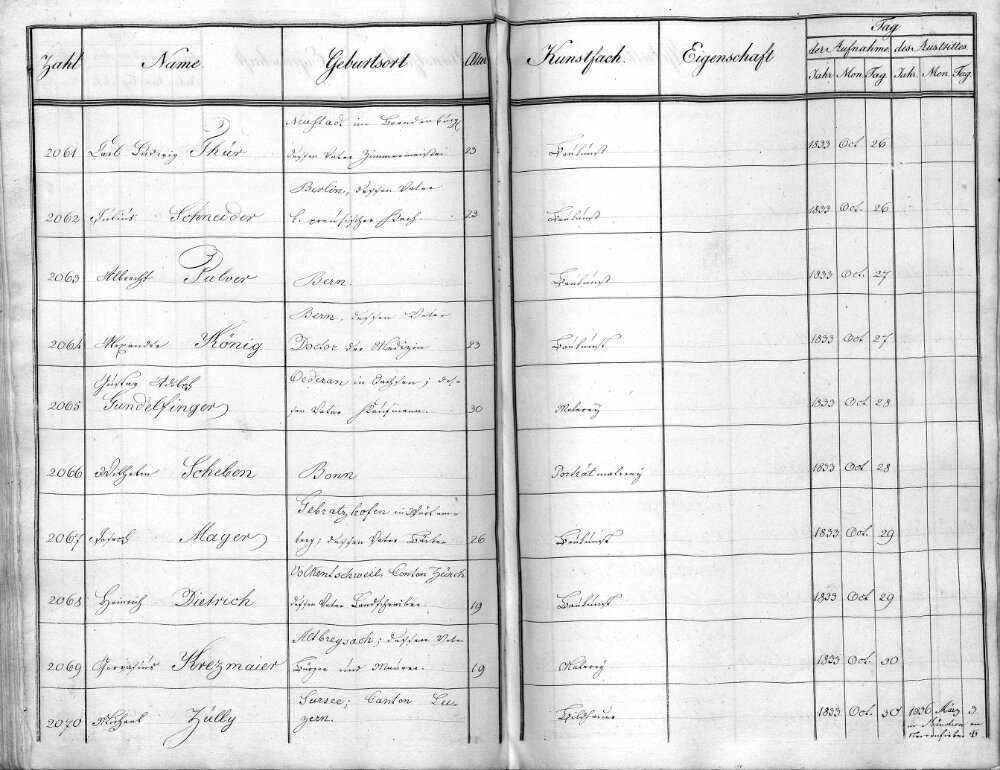 Tag
Zahl Name. Geburtsort Alter Kunstfach. Eigenschaft der Aufnahme. des Austrittes.
Jahr Mon. Tag. Jahr. Mon. Tag.
Neustadt im Brandenburg
2061 Carl Ludwig Thür dessen Vater Zimmermeister 23 Baukunst 1833 Oct 26
Berlin, dessen Vater
2062 Julius Schneider k. preußischer 23 Baukunst 1833 Oct. 26
2063 Albrecht Pulver Bern. Baukunst 1833 Oct. 27
Bern, dessen Vater
2064 Alexander König Doctor der Medizin 23 Baukunst 1833 Oct. 27
Gustav Adolph Oederan in Sachsen; des-
2065 Gundelfinger sen Vater Kaufmann. 30 Malerey 1833 Oct 28
2066 Wilhelm Scheben Bonn Porträtmalerey 1833 Oct 28
Gebratzhofen in Würtem-
2067 Joseph Mayer berg; dessen Vater 26 Baukunst 1833 Oct. 29
Volkentschweil, Canton Zürch
2068 Heinrich Dietrich dessen Vater Landschreiber. 19 Baukunst 1833 Oct 29
Altbreysach; dessen Vater
2069 Gervasius Krezmaier Bürger und Maurer. 19 Malerey 1833 Oct. 30
Sursee; Canton Lu-
2070 Michael Zülly zern. Bildhauer 1833 Oct. 30 1836 März 3
in München am
Nervenfieber †